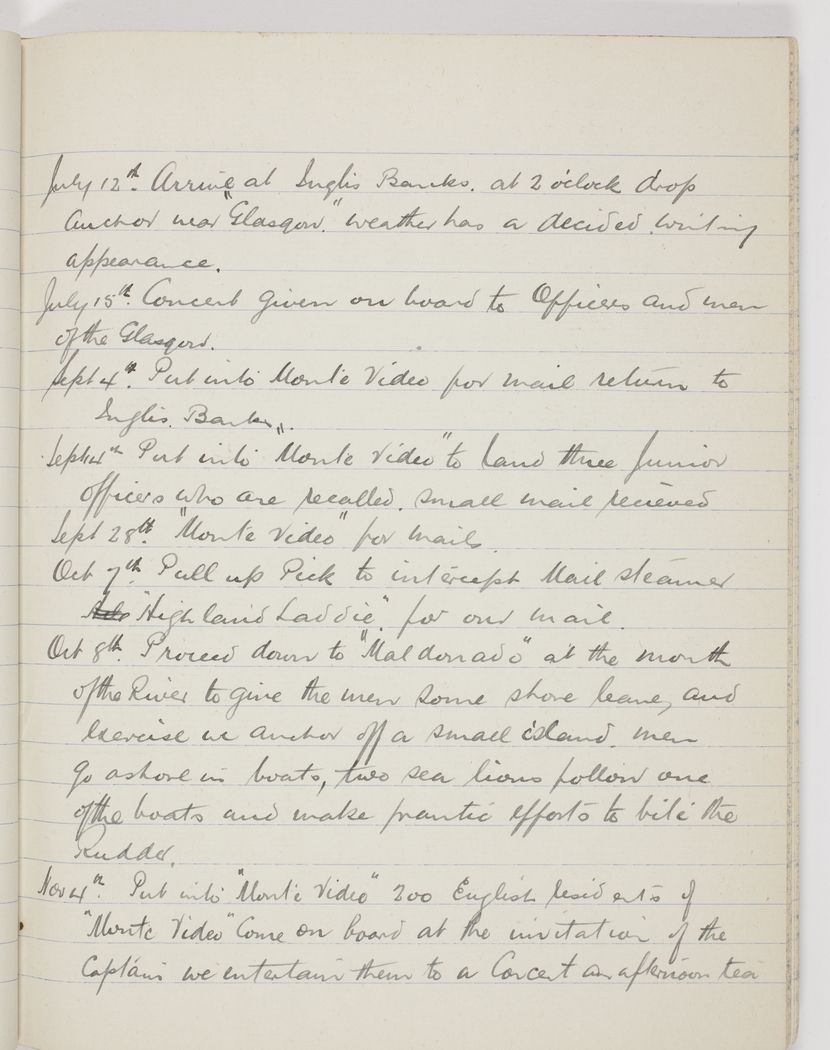 July 12th. Arrive at Inglis Banks. at 2 o'clock drop
anchor near "Glasgow." weather has a decided wintry
appearance.
July 15th. Concert given on board to Officers and men
of the Glasgow.
Sept 4th. Put into Monte Video for mail return to
Inglis. Banks.
Sept 14th Put into Monte Video" to land three Junior
officers who are recalled. small mail recieved
Sept 28th. "Monte Video" for mails.
Oct 7th. Pull up Pick to intercept Mail steamer
"Highland Laddie". for our mail.
Oct 8th. Proceed down to "Maldonado" at the mouth
of the River to give the men some shore leave, and
exercise we anchor off a small island. men
go ashore in boats, two sea lions follow one
of the boats and make frantic efforts to bite the
Rudder.
Nov 4th. Put into "Monte Video" 200 English residents of
"Monte Video" Come on board at the invitation of the
Captain we entertain them to a Concert an afternoon tea